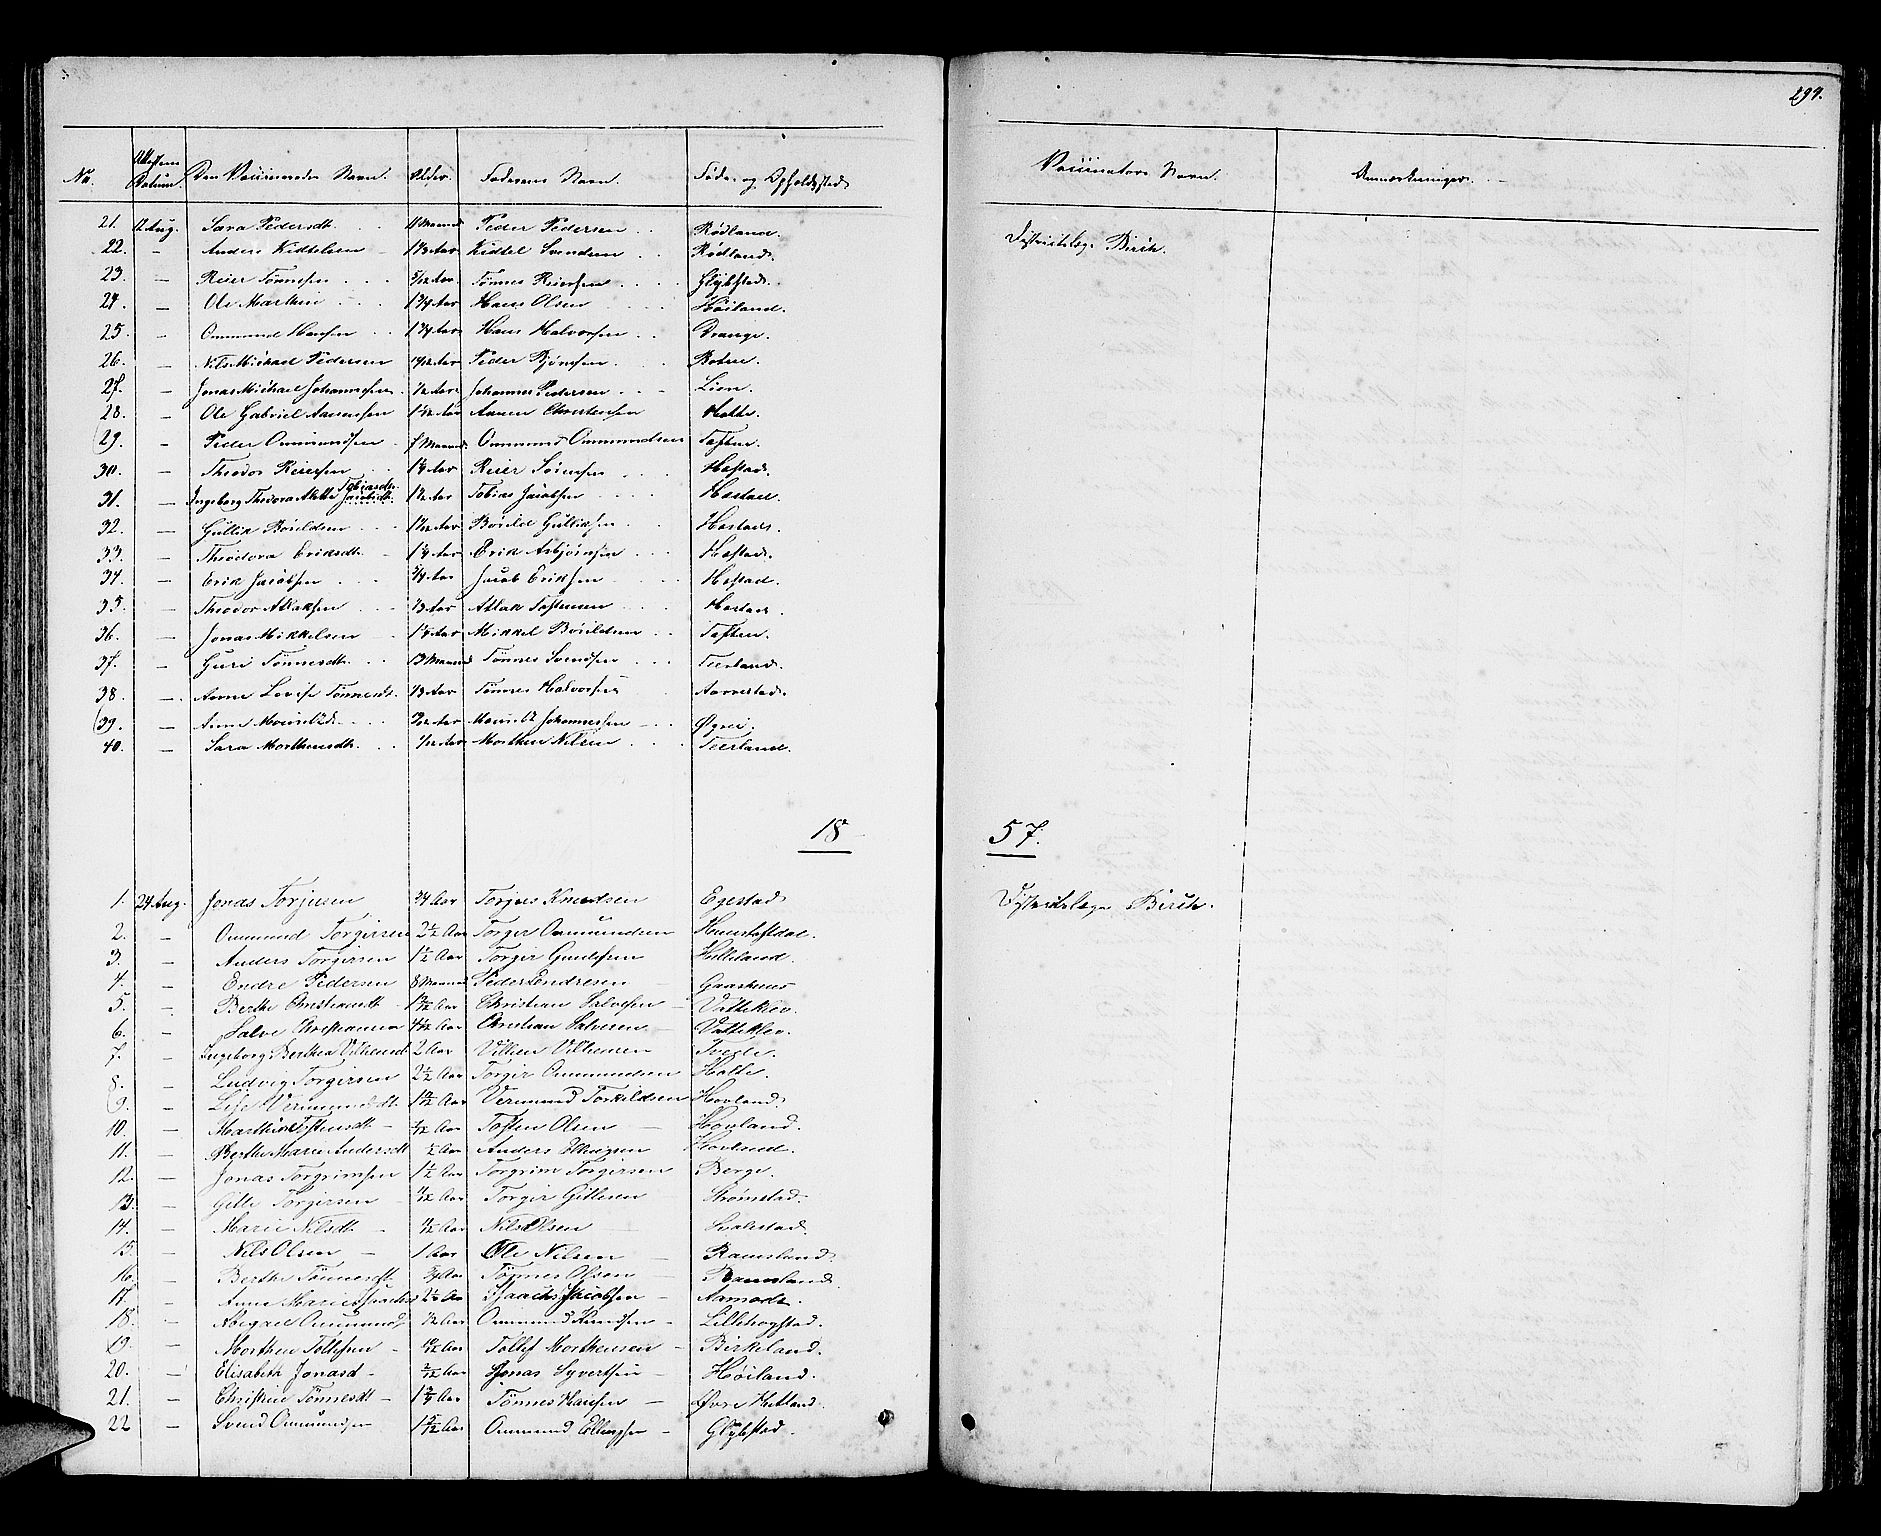 294.
No. Attestens Datum. Den Vaccineredes Navn. Alder. Faderens Navn. Føde- og Opholdssted. Vaccinators Navn. Anmærkninger.
21. 12 Aug. Sara Pedersdt. 11 Maaned Peder Pedersen Rødland. Districtslæge Birch.
22. — Anders Kidtelsen 1 1/3 Aar Kidtel Svendsen Rødland.
23. — Reier Tønnesen 5/12 Aar. Tønnes Reiersen Glybstad.
24. — Ole Hansen 1 3/4 Aar Hans Olsen Høiland.
25. — Ommund Hansen 1 3/4 Aar Hans Halvorsen Drange.
26. — Nils Michael Pedersen Aar Peder Bjørnsen Boten.
27. — Jonas Michael Johannesen Aar Johannes Pedersen Lien.
28. — Ole Gabriel Aanensen Aar Aanen Christensen Holte.
29. — Peder Ommundsen 7 Maaned Ommund Ommundsen Toften.
30. — Theodor Reiersen 1 1/4 Aar Reier Sørensen Hæstad.
31. — Ingeborg Theodora Mette Tobiasdt. Jacobsdt. 1 1/2 Aar Tobias Jacobsen Hæstad.
32. — Gullik Boieldsen Aar Boield Gulliksen Hæstad.
33. — Theodora Eriksdt. 1 1/4 Aar Erik Asbjørnsen Hæstad.
34. — Erik Jacobsen 3/4 Aar Jacob Eriksen Hæstad.
35. — Theodor Atlaksen 1/3 Aar Atlak Tostensen Hæstad.
36. — Jonas Mikkelsen 1 1/4 Aar Mikkel Boieldsen Toften.
37. — Guri Tønnesdt. 13 Maaned Tønnes Svendsen Teerland.
38. — Anne Lovise Tønnesdt. 1/3 Aar Tønnes Halvorsen Aarrestad.
39. — Anne Aar Mouritz Johannessen Øgrei.
40. — Sara Morthensdt. Aar Morthen Nilsen Teerland.
18 57.
1. 24 Aug. Jonas Torjusen 3/4 Aar Torjus Knudsen Egestad Districtslæge Birch.
2. — Ommund Torgirsen 2 1/2 Aar Torgir Ommundsen
3. — Anders Torgirsen 1 1/2 Aar Torgir Helleland.
4. — Endre Pedersen 8 Maaned Peder Endresen
5. — Berthe Christiansdt. Aar Christian Salvesen Vatteklev.
6. — Salve Christiansen Aar Christian Salvesen Vatteklev.
7. — Ingeborg Berthea Vilhemsdt. 2 Aar Villem Vilhemsen Tveite.
8. — Ludvig Torgirsen 2 1/2 Aar Torgir Ommundsen Holte.
9. — Lise Vermundsdt. Aar Vermund Torkildsen Hovland.
10. — Marthe Tostensdt. Aar Tosten Olsen Hovland.
11. — Berthe Marie Andersdt. 1/2 Aar Anders Ellingsen Hovland.
12. — Jonas Torgrimsen 1 1/2 Aar Torgrim Torgirsen Berge.
13. — Gitle Torgirsen Aar Torgir Gitlesen Strømstad.
14. — Marie Nilsdt. Aar Nils Olsen Svalestad.
15. — Nils Olsen 1 Aar Ole Nilsen Ramsland.
16. — Berthe Tønnesdt. 3/4 Aar Tønnes Olsen Ramsland.
17. — Anne Marie Isaachsd 2 1/2 Aar Isaach Jacobsen Aamodt.
18. — Abigael Ommundsd. 1/2 Aar Ommund Knudsen Lillehogstad.
19. — Morthen Tollefsen Aar Tollef Morthensen Birkeland.
20. — Elisabeth Jonasd. Aar Jonas Syvertsen Høiland.
21. — Christine Tønnesdt. 1 3/4 Aar Tønnes Hansen Øvre Hetland.
22 — Svend Ommundsen 1 5/12 Aar Ommund Ellingsen Glybstad.